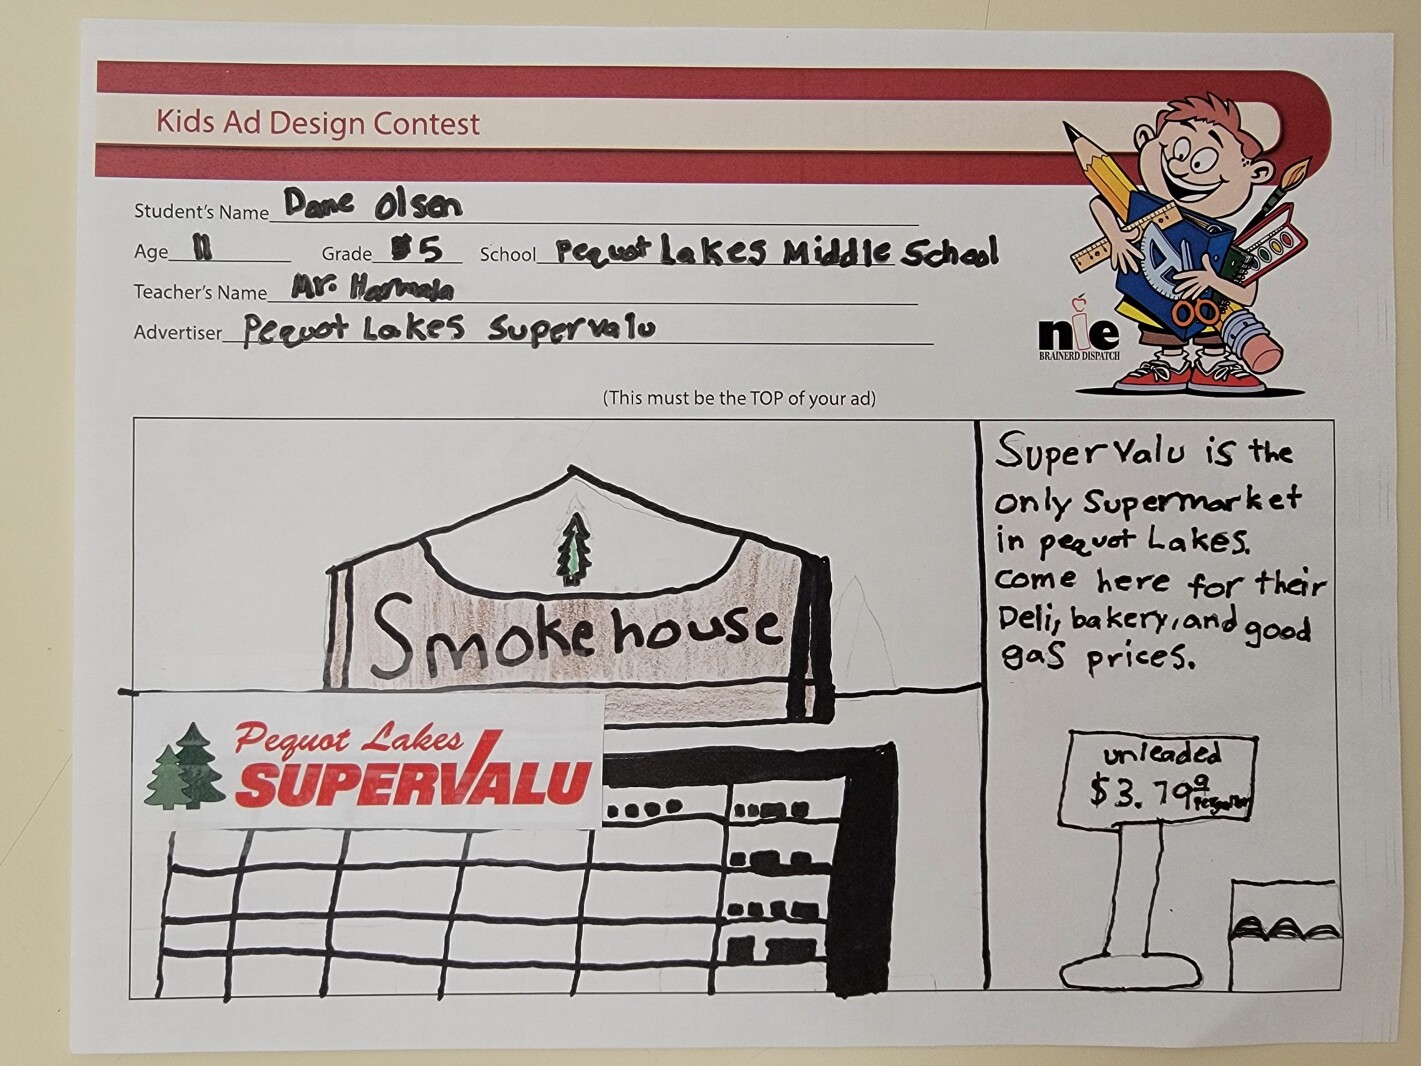 Kids Ad Design Contest
Student's Name Dane Olsen
Age 11 Grade 5 School Pequot Lakes Middle School
Teacher's Name Mr. Harmala
Advertiser Pequot Lakes Supervalu
nie
BRAINERD DISPATCH
(This must be the TOP of your ad)
Smokehouse
Pequot Lakes
SUPERVALU
Super Valu is the
only Supermarket
in pequot Lakes.
come here for their
Deli, bakery, and good
gas prices.
unleaded
$3.79 9